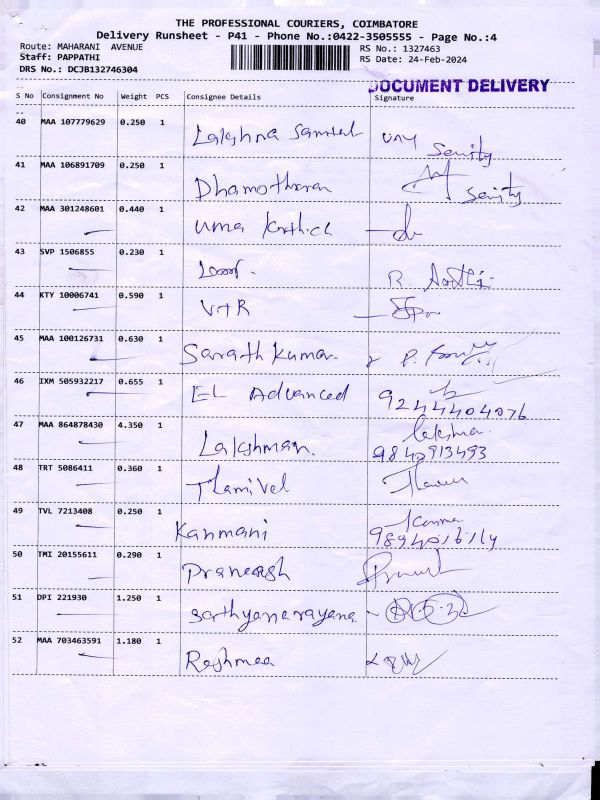 THE PROFESSIONAL COURIERS, COIMBATORE
Delivery Runsheet - P41 - Phone No.:0422-3505555 - Page No.:4
Route: MAHARANI AVENUE RS No.: 1327463
Staff: PAPPATHI RS Date: 24-Feb-2024
DRS No.: DCJB132746304
DOCUMENT DELIVERY
S No Consignment No Weight PCS Consignee Details Signature
40 MAA 107779629 0.250 1 Lakshna
41 MAA 106891709 0.250 1 Dhamotharan
42 MAA 301248601 0.440 1 Uma Karthick
43 SVP 1506855 0.230 1 R
44 KTY 10006741 0.590 1 V+R
45 MAA 100126731 0.630 1 Sarath Kumar. P.
46 IXM 505932217 0.655 1 EL Advanced
9244404076
47 MAA 864878430 4.350 1 Lakshman.
9840913493
48 TRT 5086411 0.360 1 Thamivel
49 TVL 7213408 0.250 1 Kanmani
50 TMI 20155611 0.290 1 Praneash
51 DPI 221930 1.250 1 Sathyanarayana
52 MAA 703463591 1.180 1 Reshmaa